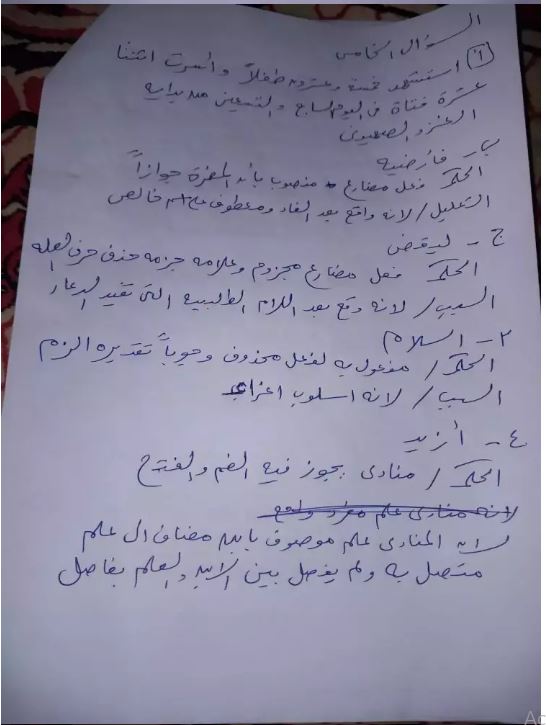 السؤال الخامس
أ استشهد خمسة وعشرون طفلاً وأسرت اثنتا
عشرة فتاة في اليوم السابع والتسعين من بداية
الغزو الصهيوني
ب- فأرضيه
الحكم فعل مضارع منصوب بأن المضمرة جوازاً
التعليل / لانه واقع بعد الفاء ومعطوف على اسم خالص
ج - ليقض
الحكم فعل مضارع مجزوم وعلامه جزمه حذف حرف العله
السبب / لانه وقع بعد اللام الطلبيه التي تفيد الدعاء
٢- السلام
الحكم / مفعول به لفعل محذوف وجوباً تقديره الزم
السبب / لانه اسلوب اغراء
٤- أزيد
الحكم / منادى يجوز فيه الضم والفتح
لانه منادى علم مفرد
لان المنادى علم موصوف بابن مضاف ال علم
متصل به ولم يفصل بين الابن والعلم بفاصل